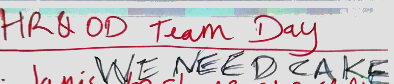 HR & OD Team Day
WE NEED CAKE